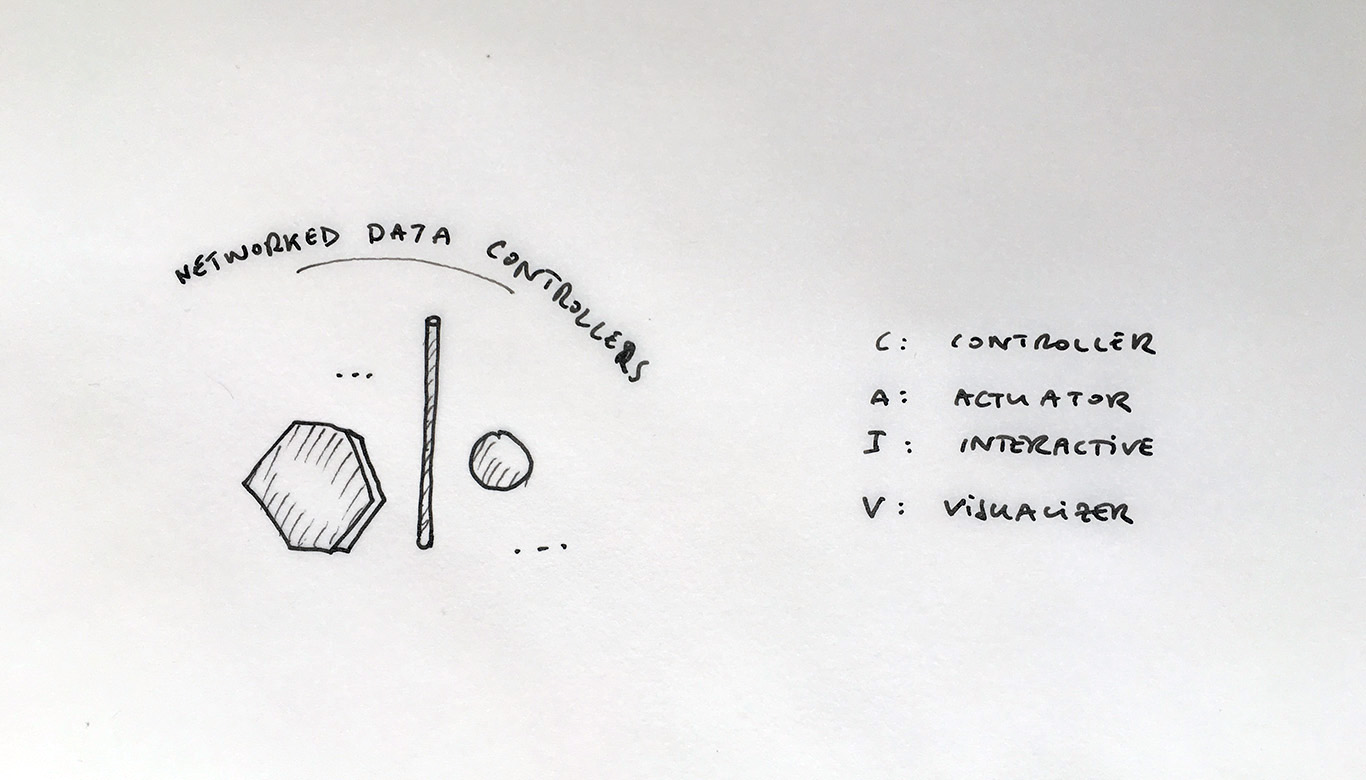 NETWORKED DATA CONTROLLERS
...
...
C: CONTROLLER
A: ACTUATOR
I: INTERACTIVE
V: VISUALIZER